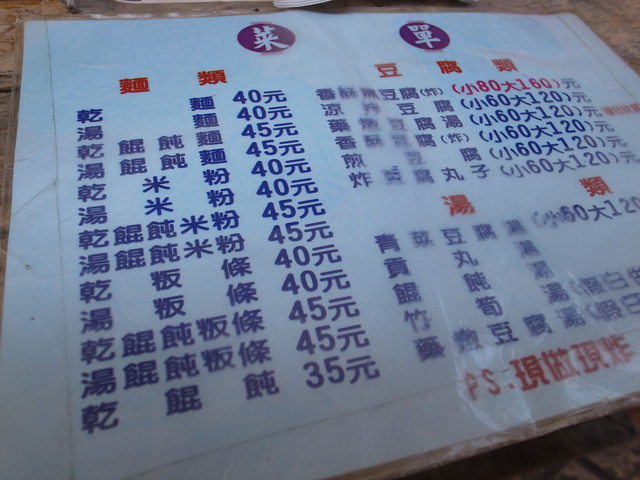 菜單
麵類
乾麵 40元
湯麵 40元
乾餛飩麵 45元
湯餛飩麵 45元
乾米粉 40元
湯米粉 40元
乾餛飩米粉 45元
湯餛飩米粉 45元
乾粄條 40元
湯粄條 40元
乾餛飩粄條 45元
湯餛飩粄條 45元
乾餛飩 35元
豆腐類
香酥豆腐(炸) (小80大160)元
涼拌豆腐 (小60大120)元
藥燉豆腐湯 (小60大120)元
香酥豆腐(炸) (小60大120)元
煎豆腐 (小60大120)元
炸豆腐丸子 (小60大120)元
湯類
青菜豆腐湯 (小60大120
貢丸湯
餛飩湯
竹筍湯(假日
藥燉豆腐湯(假日
PS.現做現炸